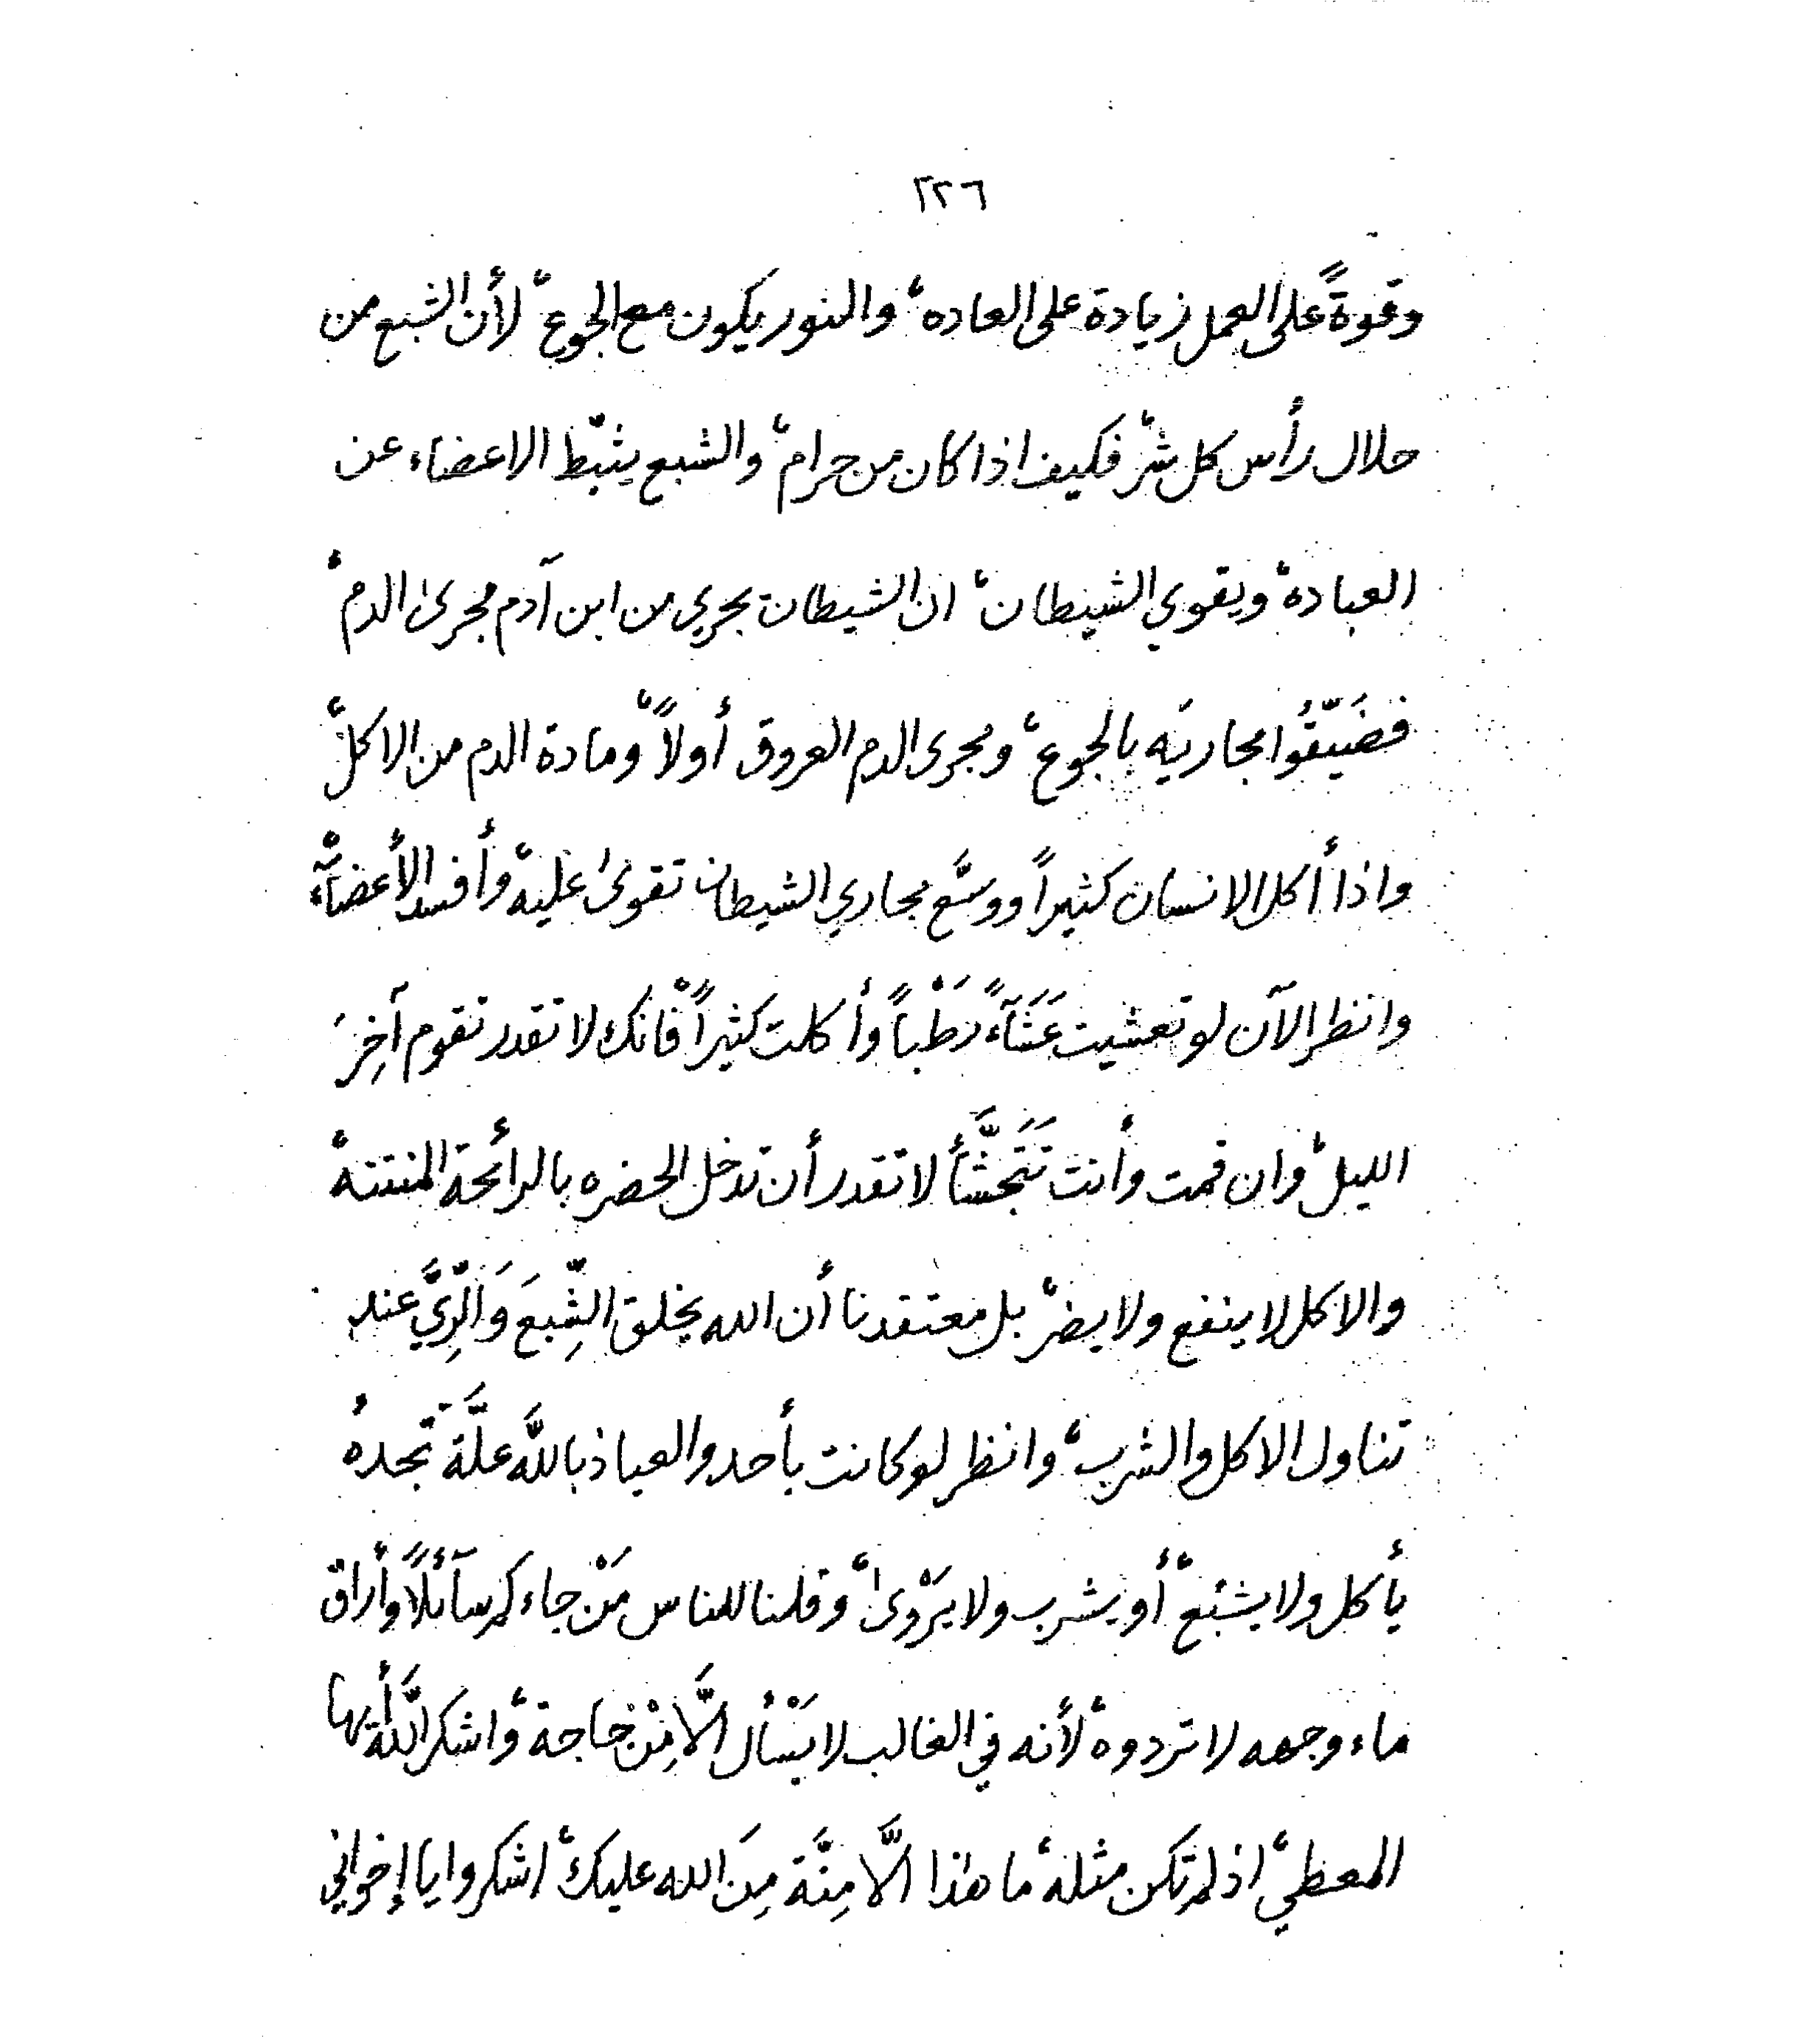 ٢٢٦
وقوةً على العمل زيادة على العاده، والنور يكون مع الجوع، لأن الشبع من
حلال رأس كل شرّ فكيف اذا كان من حرام، والشبع يثبّط الاعضاء عن
العباده، ويقوي الشيطان، ان الشيطان يجري من ابن آدم مجرى الدم،
فضَيّقُوا مجاريَه بالجوع، ومجرى الدم العروق أولاً، ومادة الدم من الاكل،
واذا أكل الانسان كثيراً ووسَّع مجاري الشيطان تقوىٰ عليه، وأفسد الأعضآء،
وانظر الآن لو تعشيت عَشَآءً رَطْباً وأكلت كثيراً، فانك لا تقدر تقوم آخِرَ
الليل، وان قمت وأنت تَتَجَشَّأ لا تقدر أن تدخل الحضره بالرائحة المنتنه،
والاكل لا ينفع ولا يضرّ بل معتقدنا أن الله يخلق الشِّبعَ وَالرِّيَّ عند
تناول الاكل والشرب، وانظر لو كانت بأحد والعياذ باللَّه علَّة تجدهُ
يأكل ولا يشبَع، أو يشرب ولا يَرْوىٰ، وقلنا للناس مَنْ جاءكم سآئلاً وأراق
ماء وجهه لا تردوه، لأنه في الغالب لا يَسْأل الَّا مِنْ حاجة، واشكر اللَّه أيها
المعطي، اذ لم تكن مثله، ما هٰذا الَّا مِنَّة مِنَ الله عليك، اشكروا يا إخواني